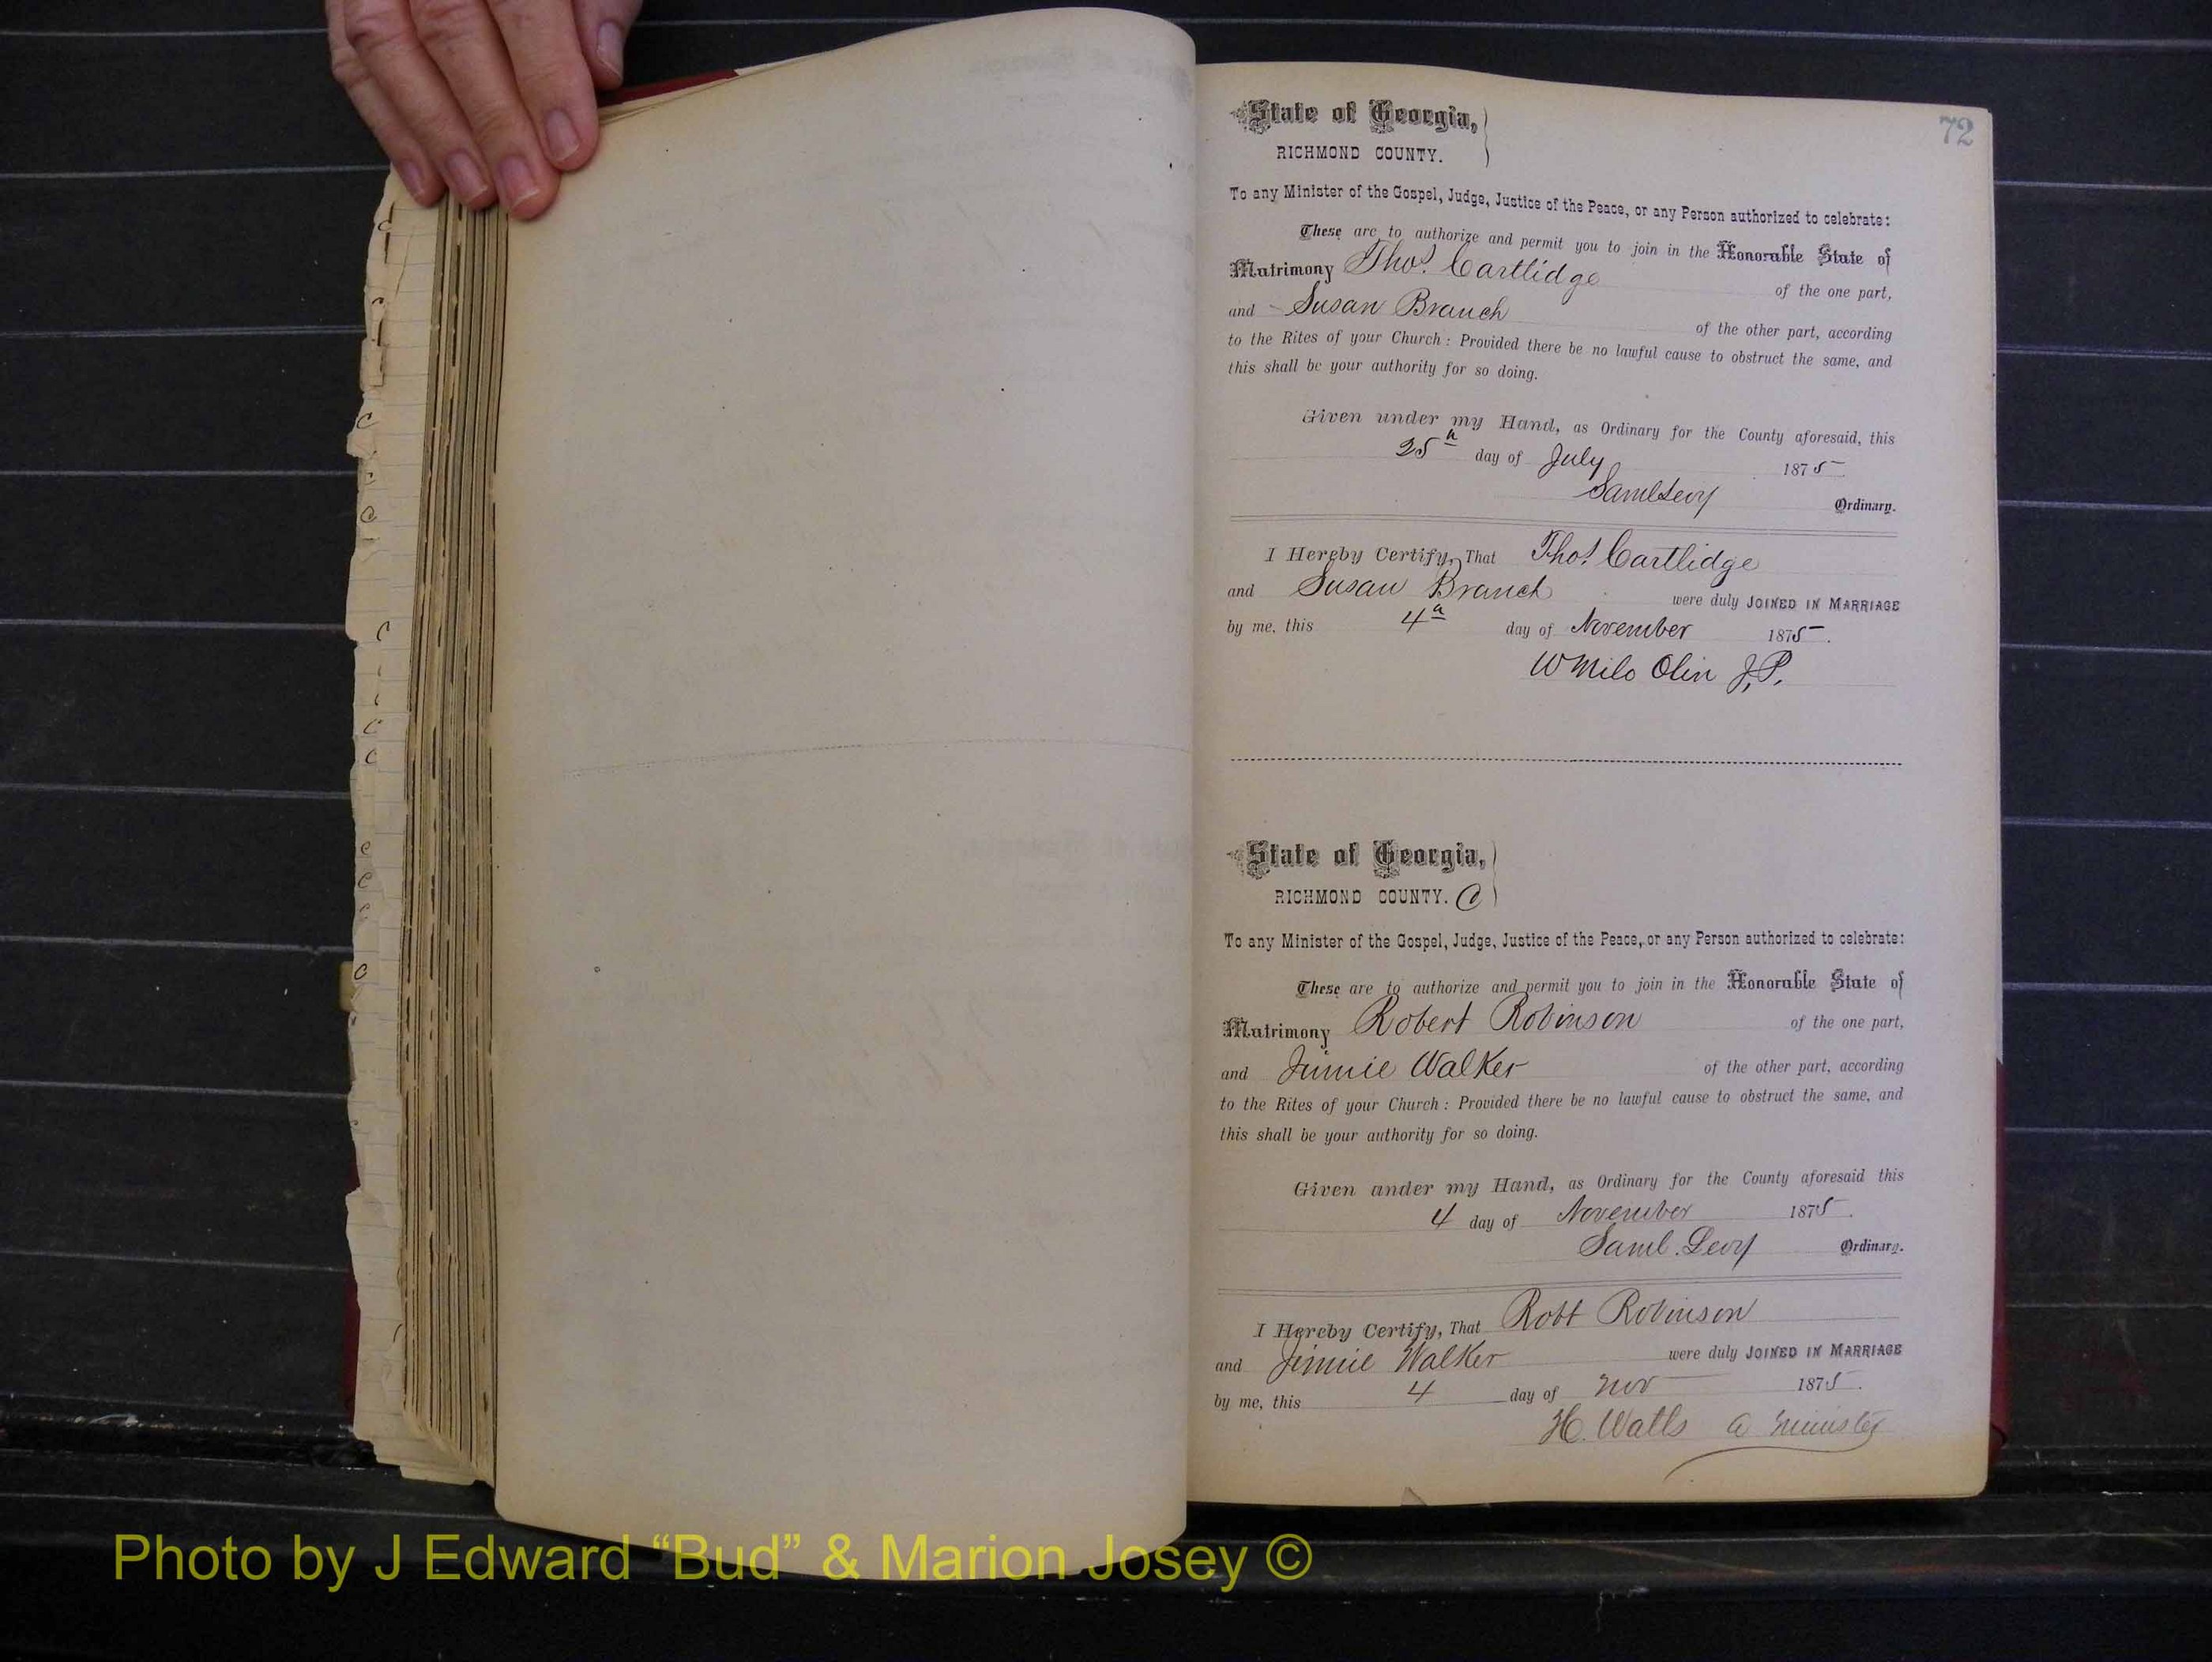 72
State of Georgia,
RICHMOND COUNTY.
To any Minister of the Gospel, Judge, Justice of the Peace, or any Person authorized to celebrate:
These are to authorize and permit you to join in the Honorable State of
Matrimony Thos. Cartlidge of the one part,
and Susan Branch of the other part, according
to the Rites of your Church: Provided there be no lawful cause to obstruct the same, and
this shall be your authority for so doing.
Given under my Hand, as Ordinary for the County aforesaid, this
25 day of July 1875
Saml Levy Ordinary.
I Hereby Certify, That Thos. Cartlidge
and Susan Branch were duly JOINED IN MARRIAGE
by me, this 4 day of November 1875.
W Milo Olin J.P.
State of Georgia,
RICHMOND COUNTY. C
To any Minister of the Gospel, Judge, Justice of the Peace, or any Person authorized to celebrate:
These are to authorize and permit you to join in the Honorable State of
Matrimony Robert Robinson of the one part,
and Jinnie Walker of the other part, according
to the Rites of your Church: Provided there be no lawful cause to obstruct the same, and
this shall be your authority for so doing.
Given under my Hand, as Ordinary for the County aforesaid this
4 day of November 1875.
Saml. Levy Ordinary.
I Hereby Certify, That Robt Robinson
and Jinnie Walker were duly JOINED IN MARRIAGE
by me, this 4 day of Nov 1875.
H. Watts a minister
Photo by J Edward “Bud” & Marion Josey ©